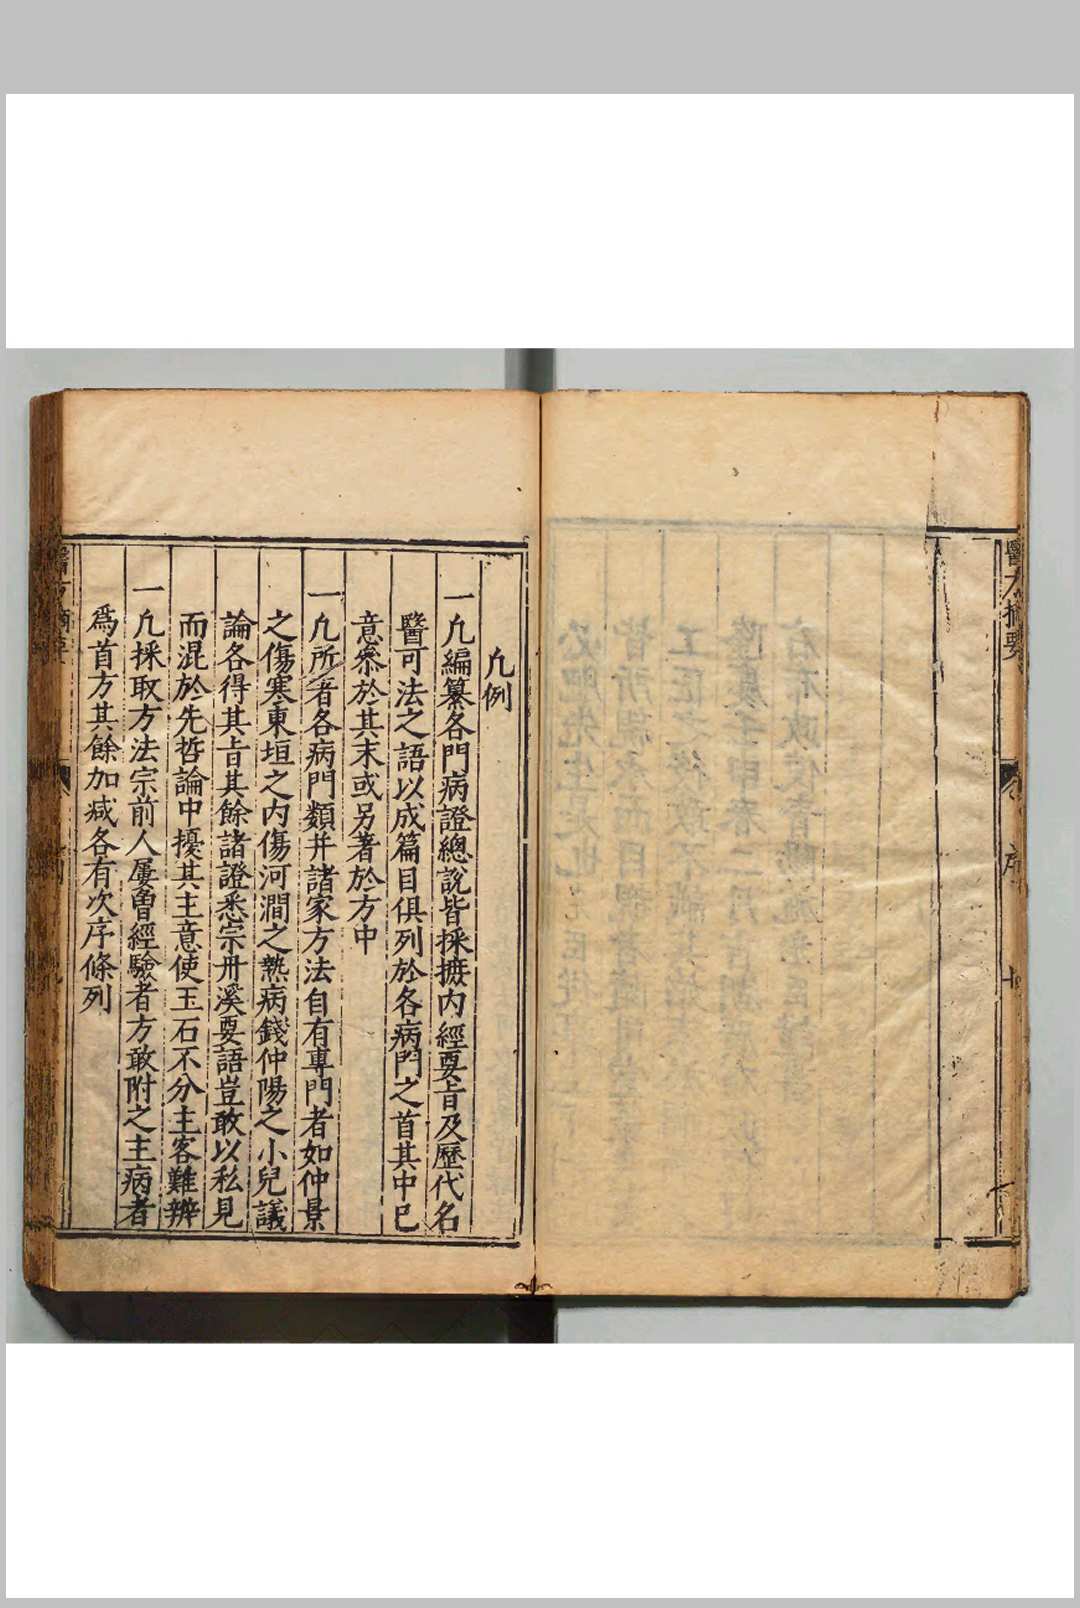 醫方摘要
序
凢例
一凢編纂各門病證總說皆採摭內經要旨及歷代名
醫可法之語以成篇目俱列於各病門之首其中已
意叅於其末或另著於方中
一凢所著各病門類并諸家方法自有專門者如仲景
之傷寒東垣之內傷河澗之熱病錢仲陽之小兒議
論各得其旨其餘諸證悉宗丹溪要語豈敢以私見
而混於先哲論中擾其主意使玉石不分主客難辨
一凢採取方法宗前人屢曾經驗者方敢附之主病者
爲首方其餘加减各有次序條列
醫方摘要